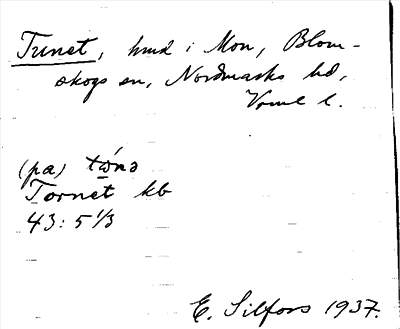 Tunet, hmd i Mon, Blom-
skogs sn, Nordmarks hd,
Vrml l.
(pa) tώnə
Tornet kb
43: 5 1/3
E. Silfors 1937.